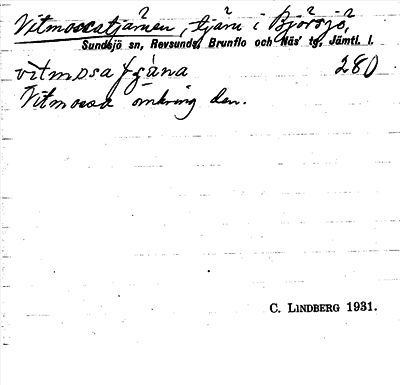 Vitmossatjärnen, tjärn i Björsjö,
Sundsjö sn, Revsunds, Brunflo och Näs' tg, Jämtl. l.
280
Vitmossa omkring den.
C. LINDBERG 1931.